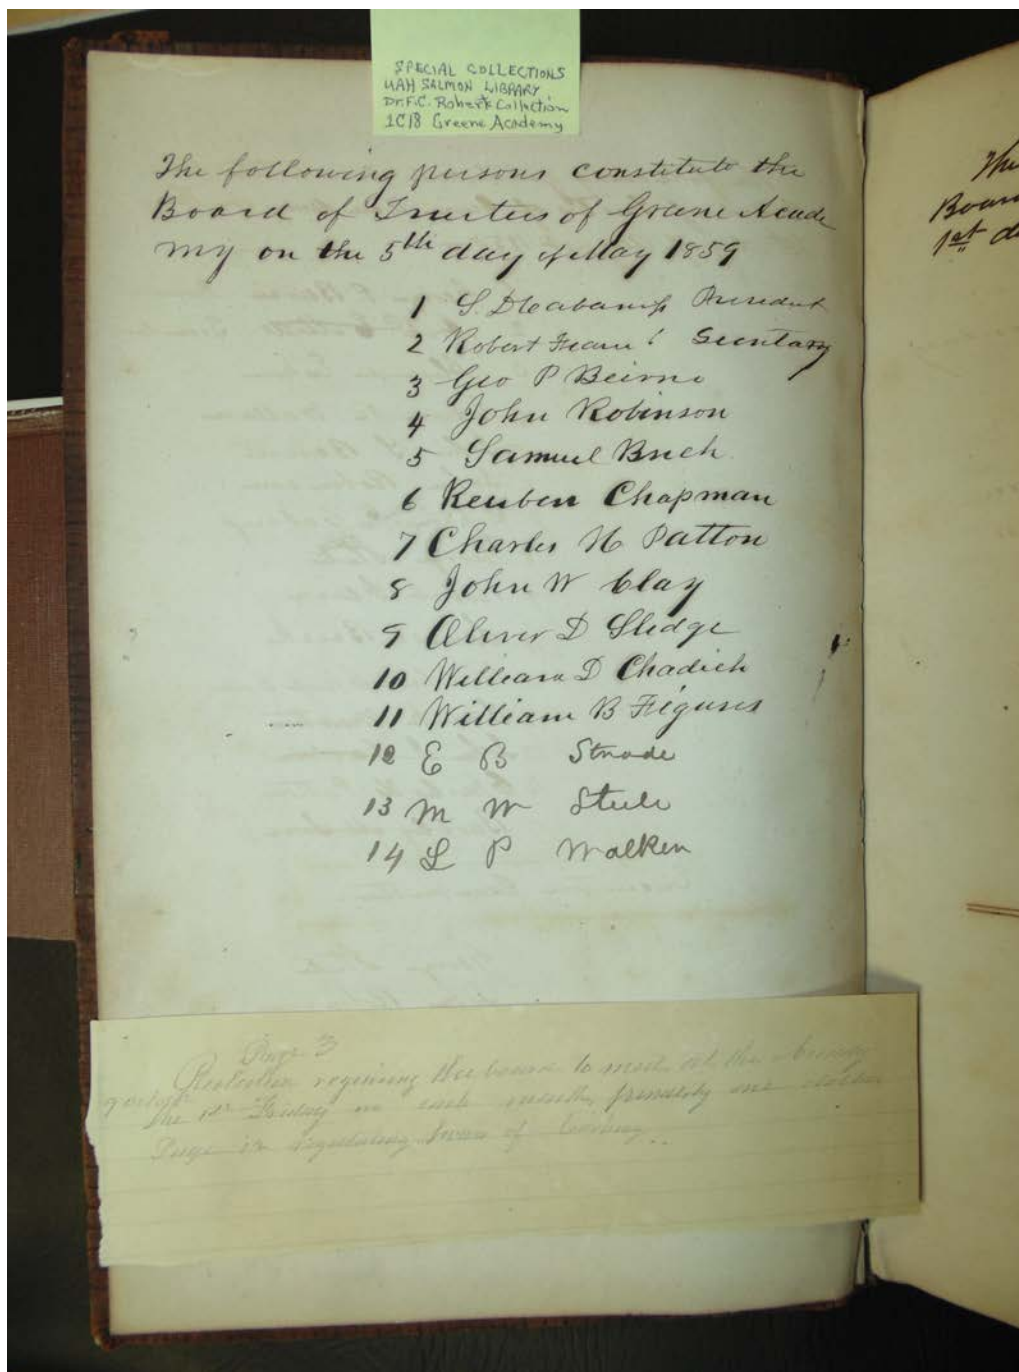 SPECIAL COLLECTIONS
UAH SALMON LIBRARY
Dr. F.C. Roberts Collection
1C18 Greene Academy
The following persons constitute the
Board of Trustees of Greene Acade
my on the 5th day of May 1859
1 S. D Cabaniss President
2 Robert Fearn Secretary
3 Geo P Beirne
4 John Robinson
5 Samuel Breck
6 Reuben Chapman
7 Charles H Patton
8 John W Clay
9 Oliver D Sledge
10 William D Chadick
11 William B Figures
12 E B Strode
13 M W Steele
14 L P Walker
Page 3
requiring the board to meet at the
the 1st Friday in each month, penalty one dollar
Page 12 regulating hours of
The
Board
1st d